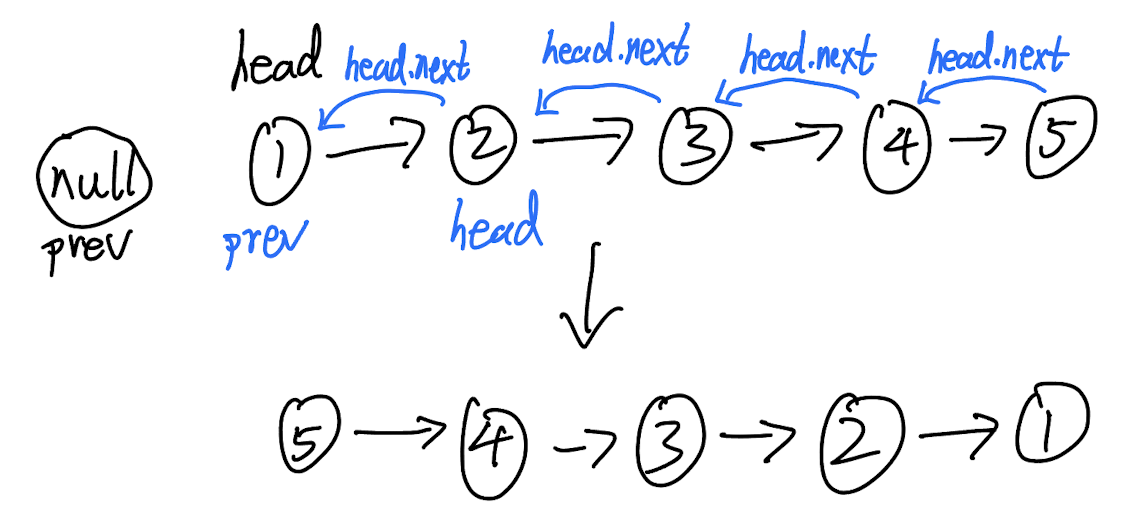 head head.next head.next head.next head.next
null 1 2 3 4 5
prev prev head
5 4 3 2 1